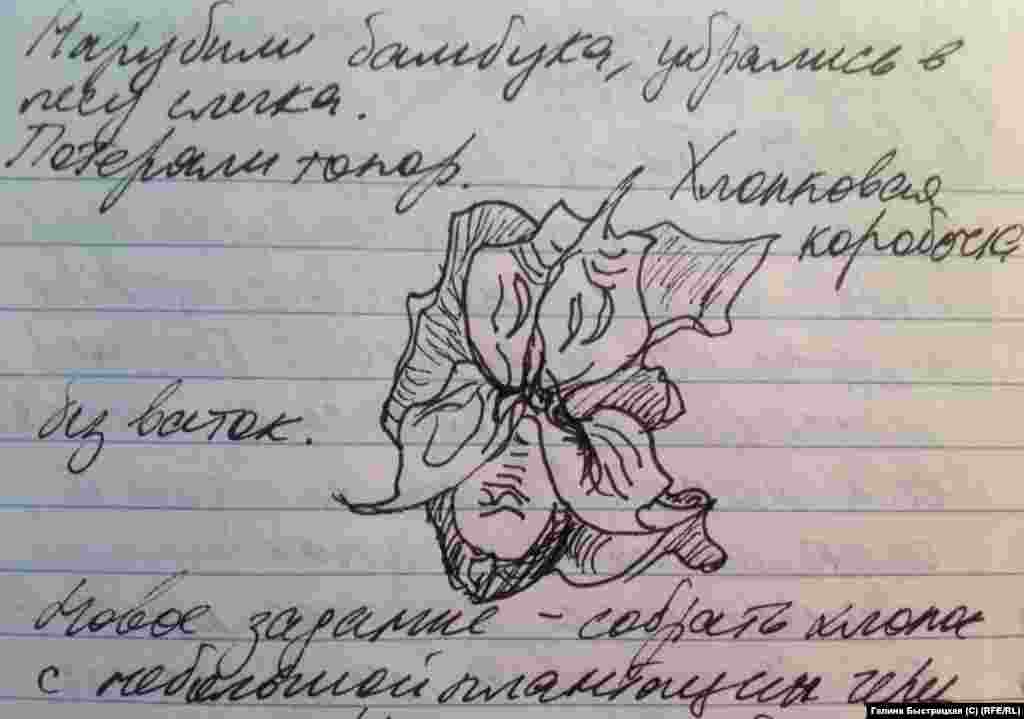 Нарубили бамбука, убрались в
лесу слегка.
Потеряли топор.
Хлопковая
коробочка
без ваток.
Новое задание - собрать хлопок
с небольшой плантации
Галина Быстрицкая (C) (RFE/RL)